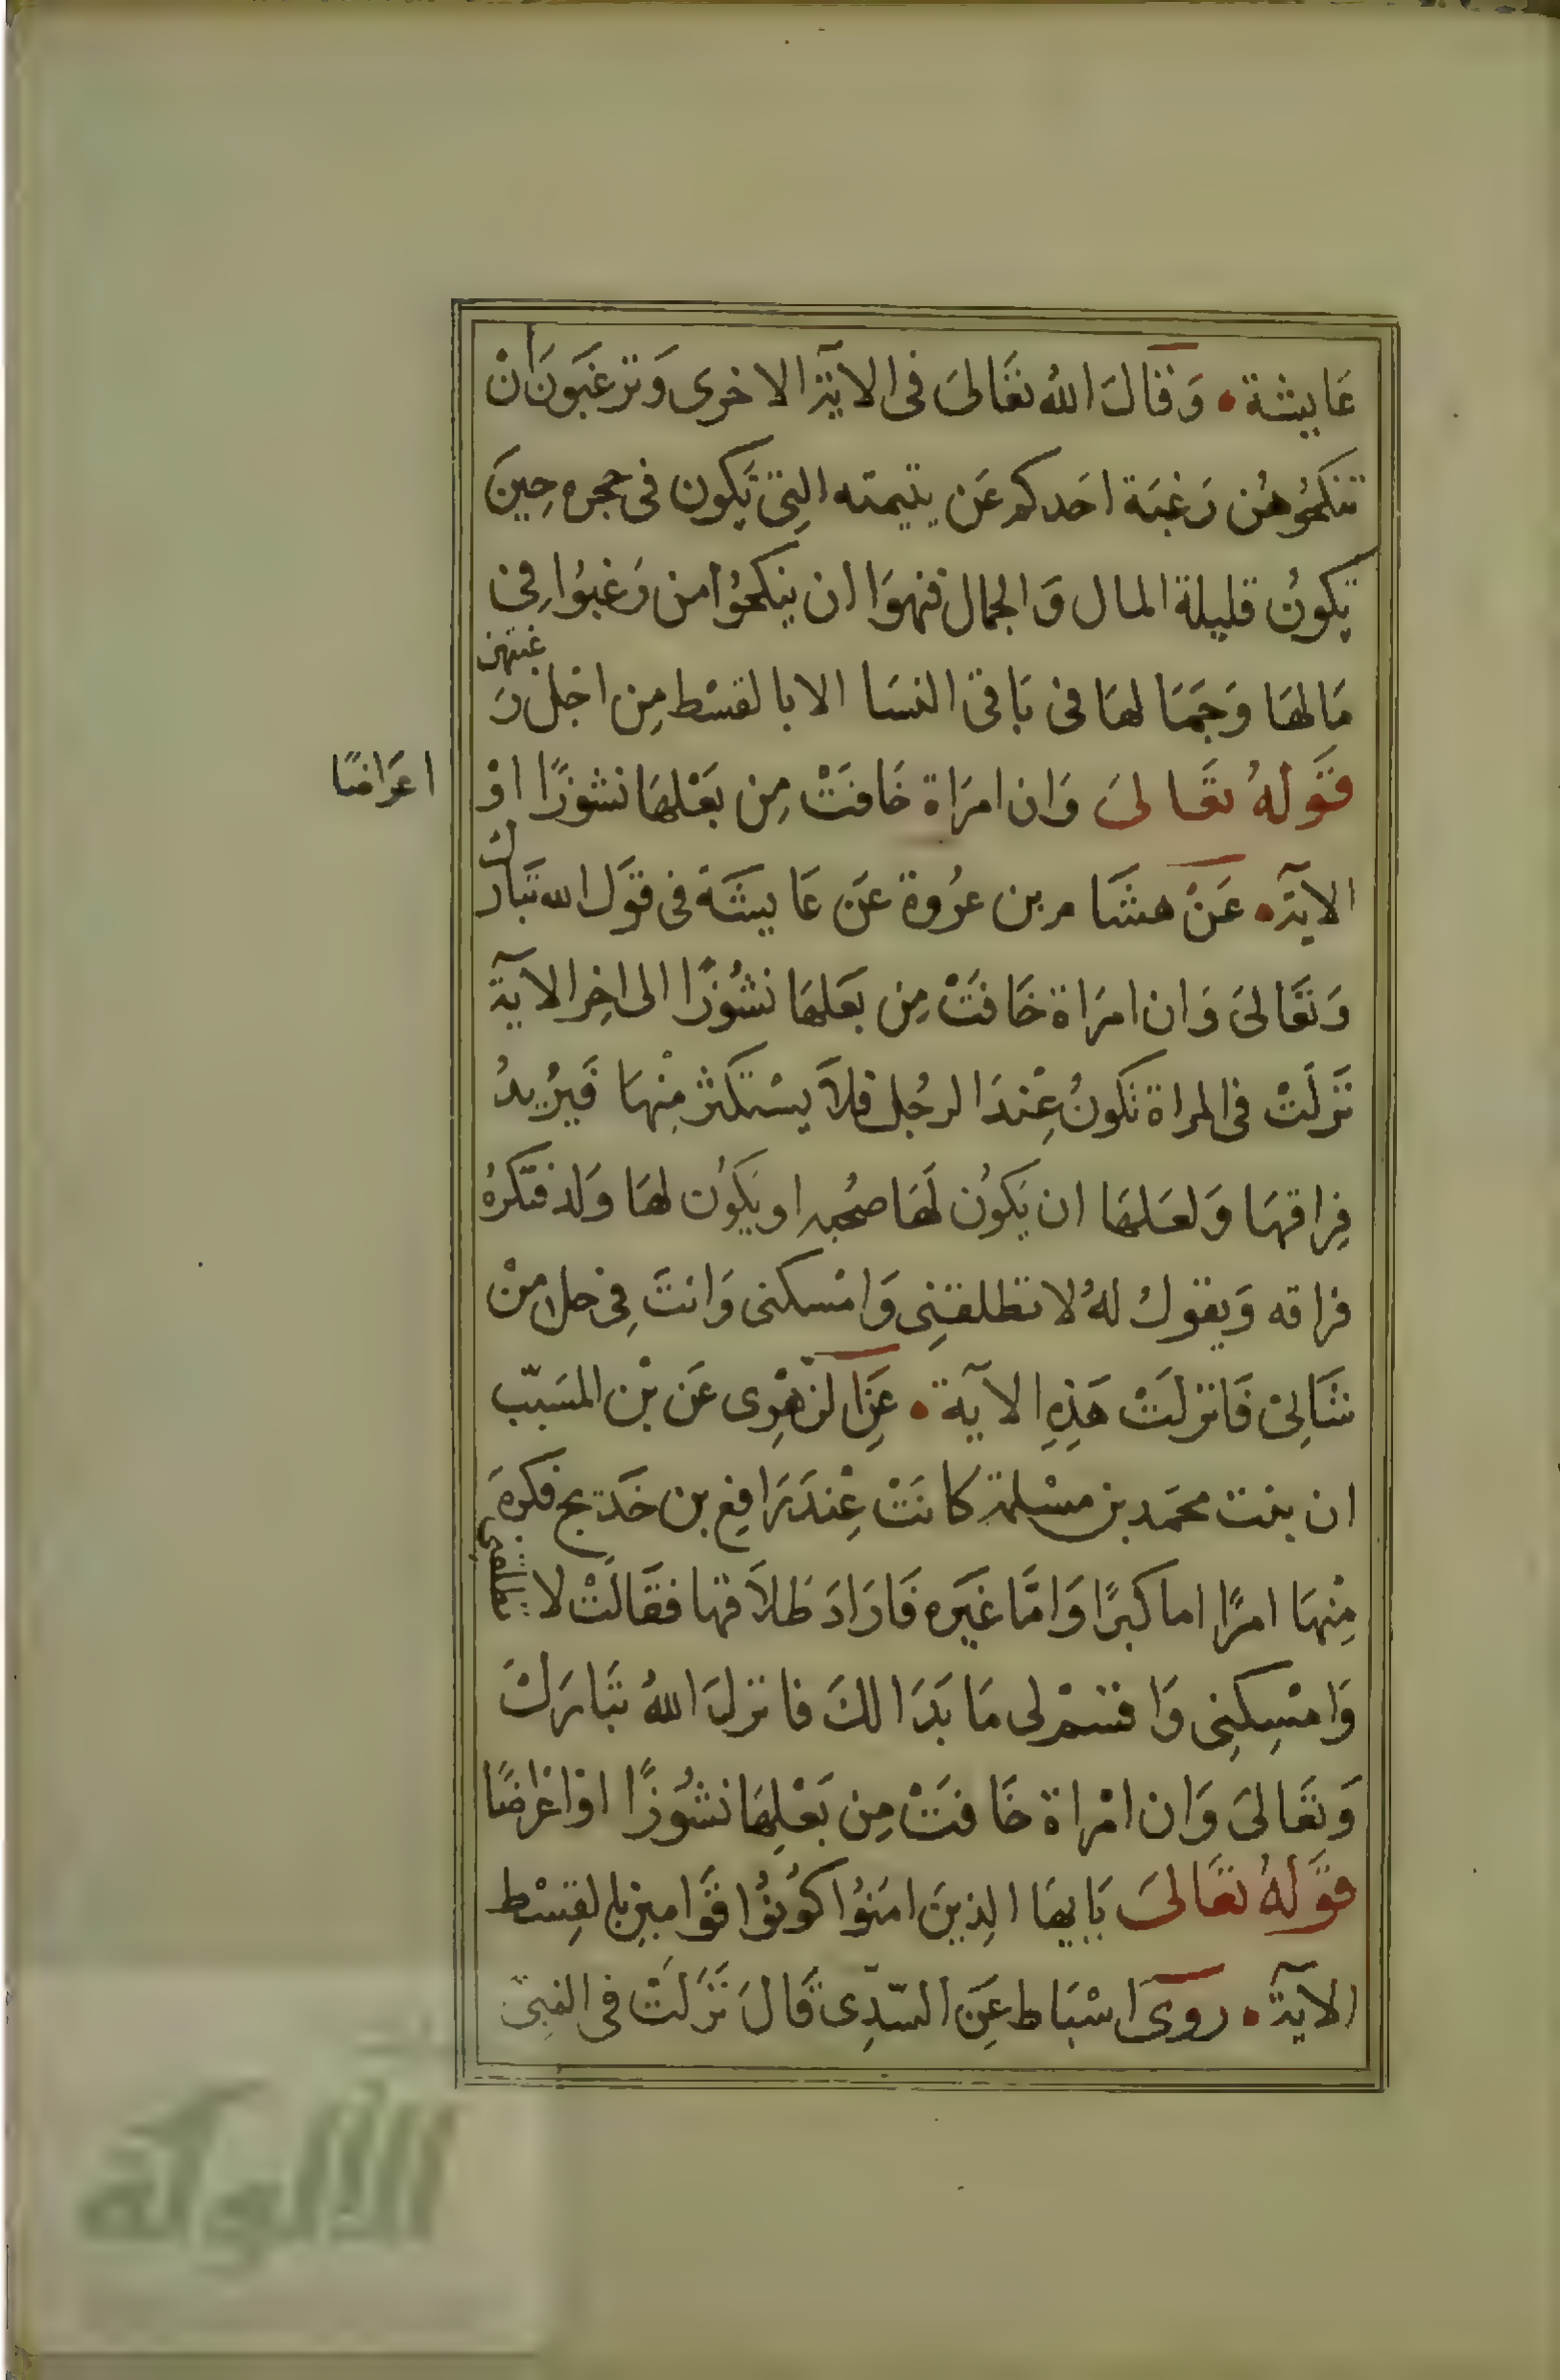 عَايشة • وَقَالَ اللهُ تعَالىَ فى الآية الاخرى وَترغبَونَ انْ
تنكحُوهُن رَغبَة احَدكم عَن يتيمته التِى تَكون فى حجره حِينَ
تكونُ قليلة المال وَالجمال فنهوَا ان ينكحُوا من رَغبوُا فِى
مَالهَا وَجَمَالهَا فى بَاقى النسَا الا بالقسْط مِن اجْل رَغبتهن
قوَلهُ تعَالىَ وَان امرَاة خَافتْ مِن بَعْلهَا نشوزًا اوْ اعرَاضًا
الآية • عَنْ هشَام بن عرُوة عَن عَايشَة فى قوَل الله تبَارك
وَتعَالىَ وَان امرَاة خَافتْ مِن بعَلهَا نشُوزًا الى اخِر الآية
نَزلَتْ فى المراة تكونُ عِنْدَ الرجُل فلاَ يسْتكثر مِنْهَا فَيرُيدُ
فِراقهَا وَلعَلهَا ان يَكوُن لهَا صحُبه او يَكوُن لهَا وَلد فتكرهُ
فراقه وَيقولُ لهُ لا تطلقنِى وَامْسكنى وَانتَ فِى حل منْ
شَانِىْ فَانزلَتْ هَذِهِ الآية • عَنِ الزهْرِى عَن بْن المسَيّب
ان بنت محمَد بن مسْلمة كانَتْ عِنْدَ رَافِع بن خَديج فكرهَ
مِنْهَا امرًا اما كبرًا وَامَّا غَيَره فَارَادَ طَلاَقها فقَالَتْ لا تطلقنى
وَامْسِكنِى وَاقسْم لى مَا بَدَا لكَ فانزلَ اللهُ تبَارَكَ
وَتعَالىَ وَان امْراة خَافتْ مِن بَعْلِهَا نشُوزًا اوْ اعْرَاضًا
قوَلهُ تعَالىَ يَايهَا الذِينَ امَنوُا كوُنوُا قوَامين بالقِسْط
الآية • روىَ اسْبَاط عَنِ السّدِى قَالَ نَزَلَتْ فى النبِى
الألوكة